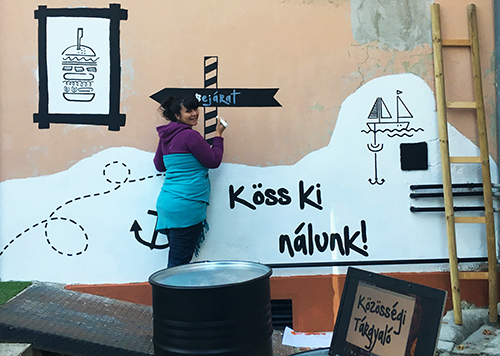 Bejárat
Köss ki
nálunk!
Közösségi
Tárgyaló